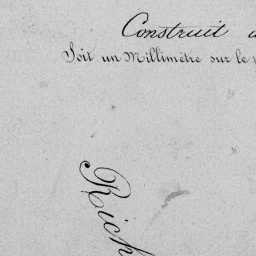 Construit
Soit un Millimètre sur le
Rich